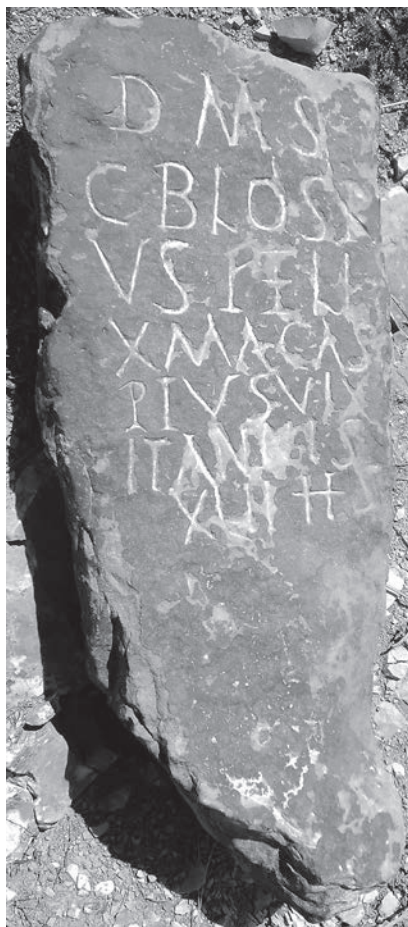 D M S
C BLOSSI
VS FELI
X MACAS
PIVS VIX
IT ANNIS
XLII H S